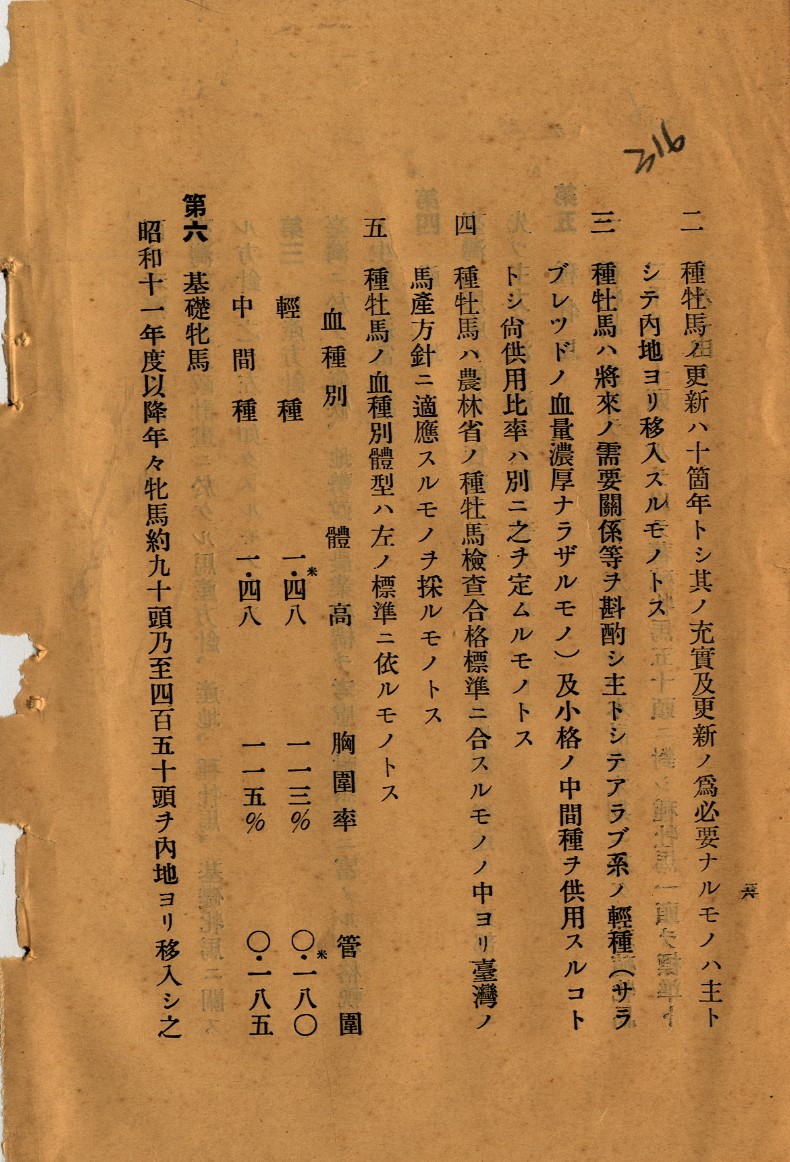 二　種牡馬ノ更新ハ十箇年トシ其ノ充實及更新ノ爲必要ナルモノハ主ト
シテ內地ヨリ移入スルモノトス
三　種牡馬ハ將來ノ需要關係等ヲ斟酌シ主トシテアラブ系ノ輕種（サラ
ブレツドノ血量濃厚ナラザルモノ）及小格ノ中間種ヲ供用スルコト
トシ尙供用比率ハ別ニ之ヲ定ムルモノトス
四　種牡馬ハ農林省ノ種牡馬檢查合格標準ニ合スルモノノ中ヨリ臺灣ノ
馬產方針ニ適應スルモノヲ採ルモノトス
五　種牡馬ノ血種別體型ハ左ノ標準ニ依ルモノトス
血種別　體高　胸圍率　管圍
輕種　一・四八米　一一三％　〇・一八〇米
中間種　一・四八　一一五％　〇・一八五
第六　基礎牝馬
昭和十一年度以降年々牝馬約九十頭乃至四百五十頭ヲ內地ヨリ移入シ之